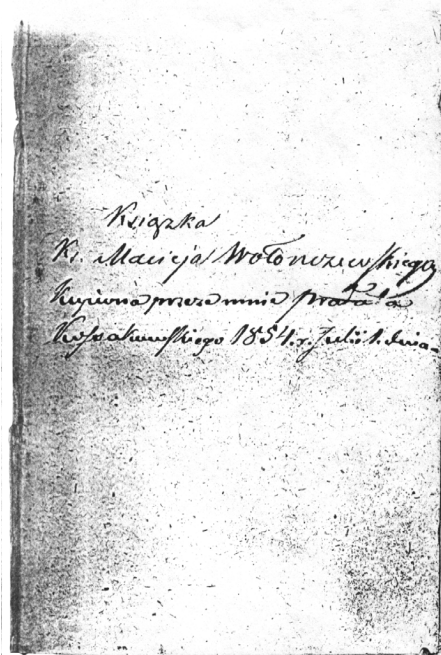 Książka
Ks. Macieja Wołonczewskiego
Kupiona przeze mnie prałata
Kossakowskiego 1854. r. Julii 1. dnia